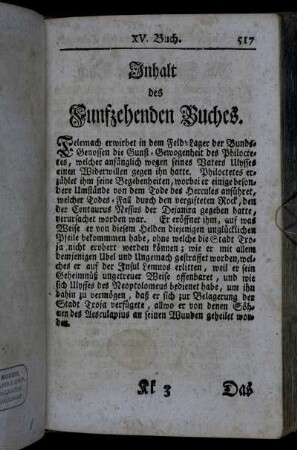 XV. Buch. 517
Inhalt
des
Funfzehenden Buches.
Telemach erwirbet in dem Feld-Lager der Bunds-
Genossen die Gunst-Gewogenheit des Philocte-
tes, welcher anfänglich wegen seines Vaters Ulysses
einen Widerwillen gegen ihn hatte. Philoctetes er-
zählet ihm seine Begebenheiten, worbei er einige beson-
dere Umstände von dem Tode des Hercules anführet,
welcher Todes-Fall durch den vergifteten Rock, den
der Centaurus Nessus der Dejanira gegeben hatte,
verursachet worden war. Er eröffnet ihm, auf was
Weise er von diesem Helden diejenigen unglücklichen
Pfeile bekommen habe, ohne welche die Stadt Tro-
ja nicht erobert werden können; wie er mit allem
demjenigen Ubel und Ungemach gestraffet worden, wel-
ches er auf der Insul Lemnos erlitten, weil er sein
Geheimnüß ungetreuer Weise offenbaret, und wie
sich Ulysses des Neoptolomeus bedienet habe, um ihn
dahin zu vermögen, daß er sich zur Belagerung der
Stadt Troja verfügete, allwo er von denen Söh-
nen des Aesculapius an seinen Wunden geheilet wor-
den.
Kk 3 Das